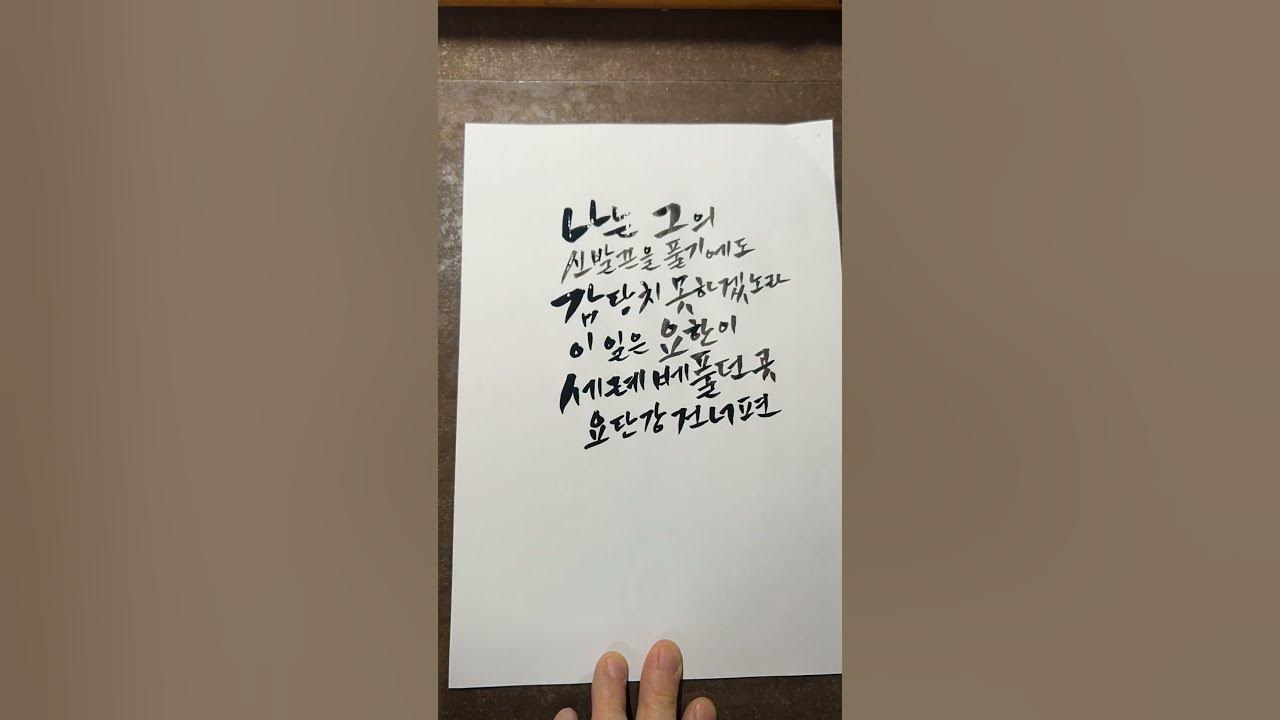 나는 그의
신발끈을 풀기에도
감당치 못하겠노라
이 일은 요한이
세례 베풀던 곳
요단강 건너편